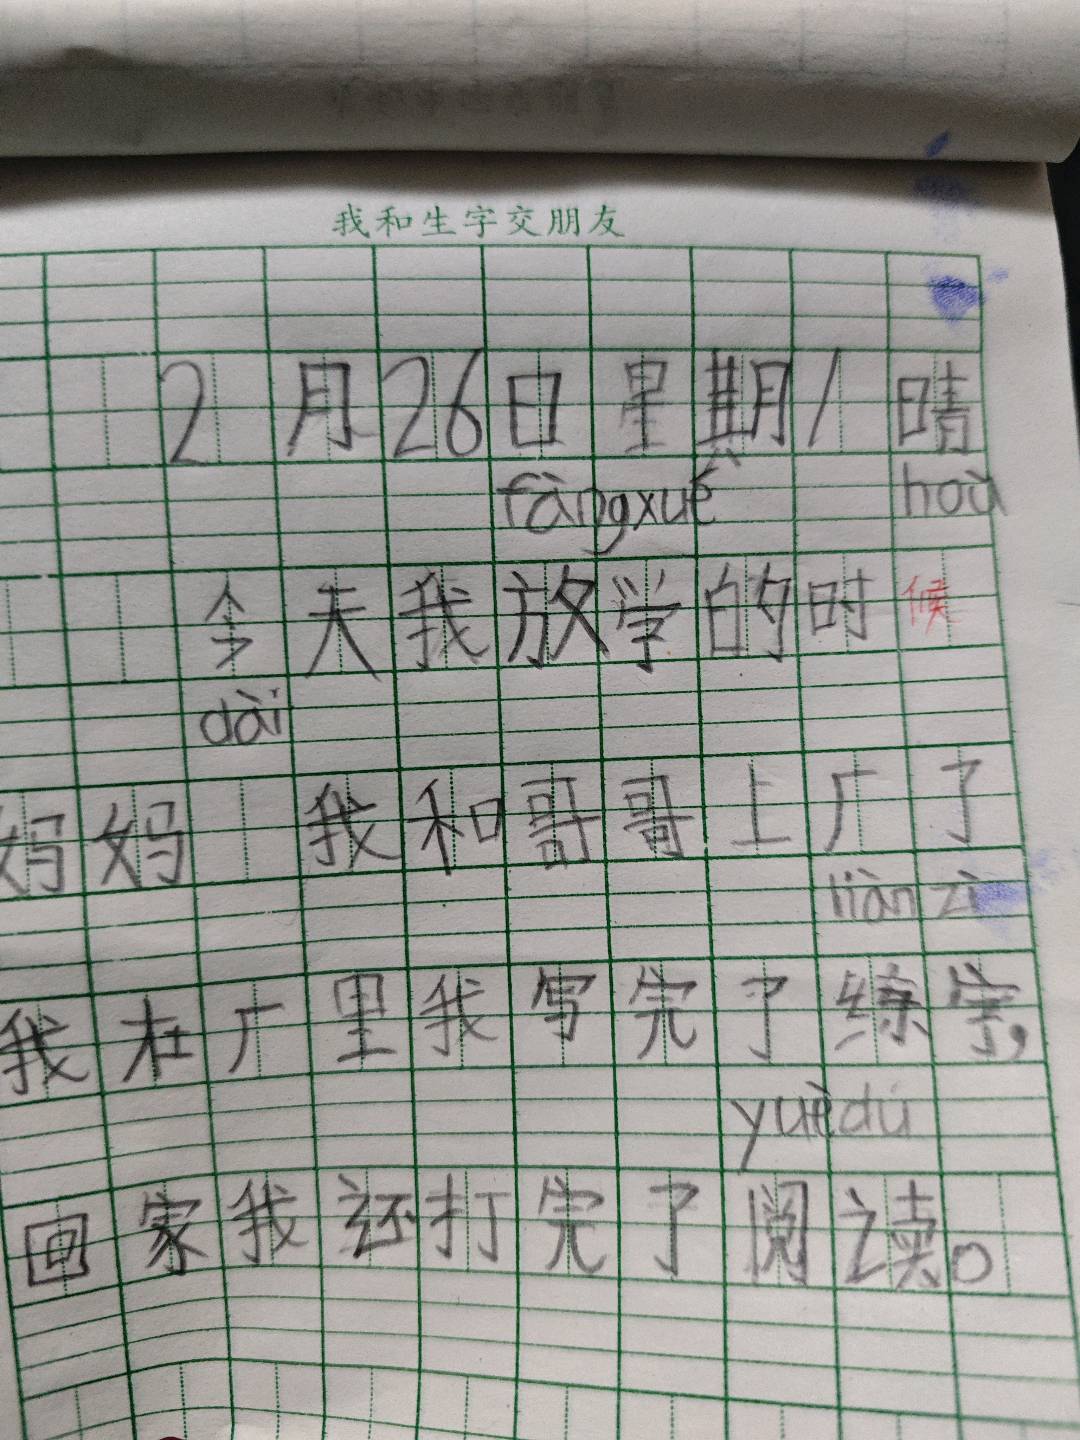 我和生字交朋友
2月26日星期1 晴
fàngxué hoà
今天我放学的时候
dài
妈妈 我和哥哥上广了
liàn zì
我在广里我写完了练字,
yuèdú
回家我还打完了阅读。